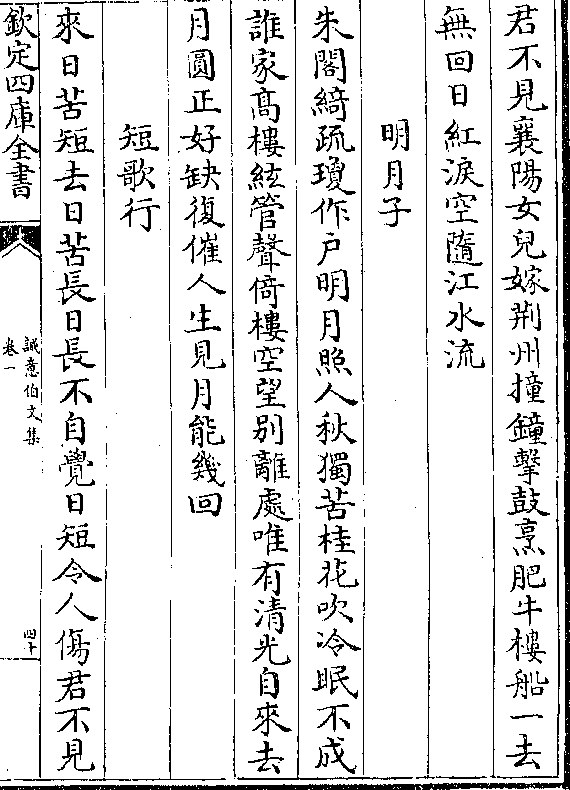 君不見襄陽女兒嫁荆州撞鐘擊鼓烹肥牛樓船一去
無回日紅淚空隨江水流
明月子
朱閣綺疏瓊作戶明月照人秋獨苦桂花吹冷眠不成
誰家高樓絃管聲倚樓空望别離處唯有清光自來去
月圓正好缺復催人生見月能幾回
短歌行
來日苦短去日苦長日長不自覺日短令人傷君不見
欽定四庫全書
誠意伯文集
卷一
四十